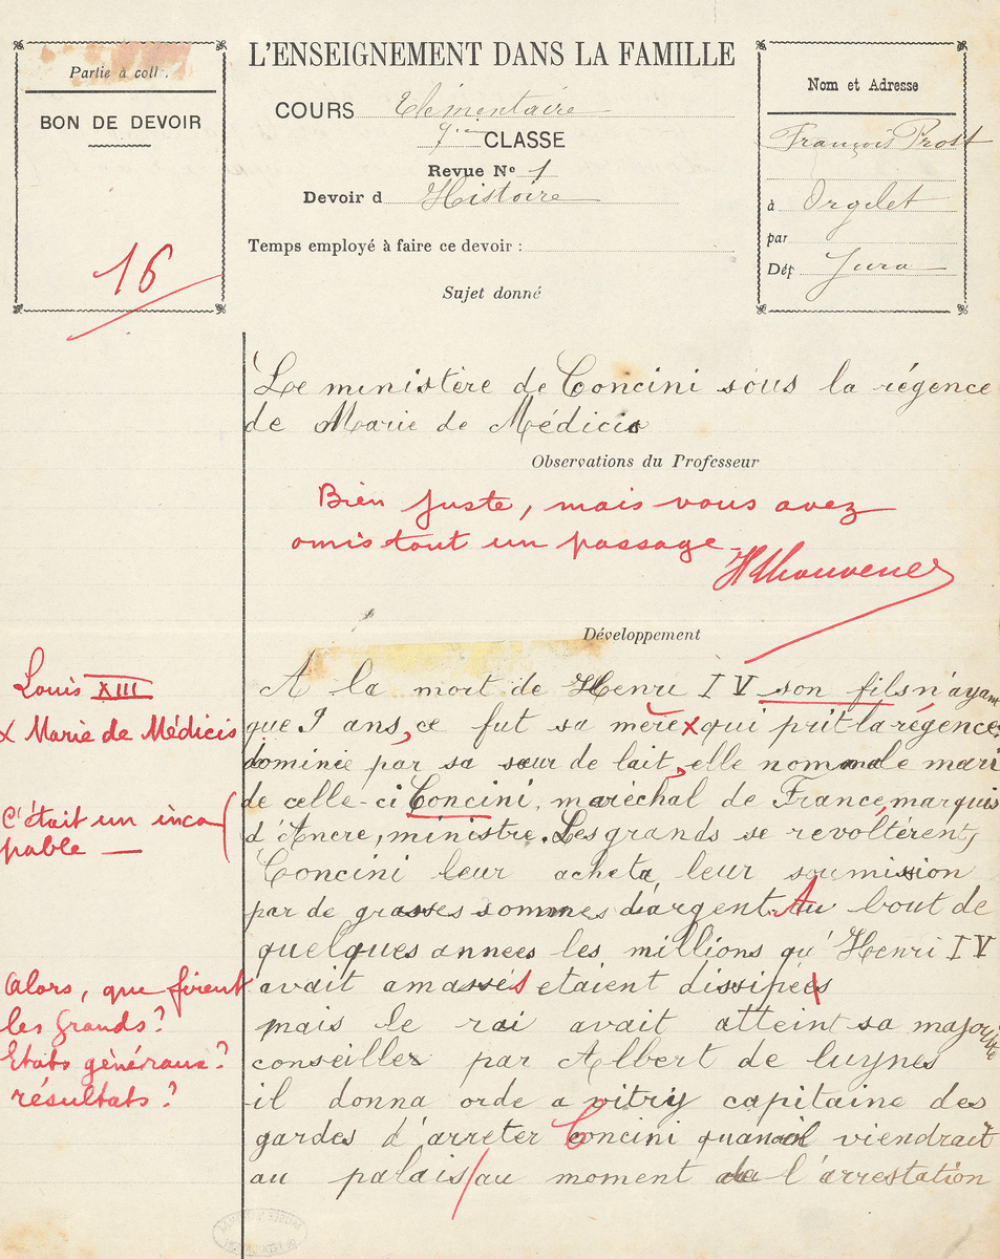 Partie à coll
BON DE DEVOIR
16
L'ENSEIGNEMENT DANS LA FAMILLE
COURS Elémentaire
9me CLASSE
Revue No 1
Devoir d Histoire
Temps employé à faire ce devoir :
Sujet donné
Nom et Adresse
François Prost
à Orgelet
par
Dép Jura
Le ministère de Concini sous la régence
de Marie de Médicis
Observations du Professeur
Bien juste, mais vous avez
omis tout un passage
Développement
Louis XIII
x Marie de Médicis
C'était un inca
pable —
Alors, que firent
les Grands?
Etats généraux?
résultats?
A la mort de Henri IV son fils n'ayant
que 9 ans, ce fut sa mère x qui prit la régence.
dominée par sa sœur de lait, elle nomma le mari
de celle-ci Concini, maréchal de France, marquis
d'Ancre, ministre. Les grands se revoltèrent,
Concini leur acheta leur soumission
par de grosses sommes d'argent. Au bout de
quelques annees les millions qu'Henri IV
avait amassés etaient dissipés
mais le roi avait atteint sa majorité
conseiller par Albert de luynes
il donna orde a vitry capitaine des
gardes d'arreter Concini quand il viendrait
au palais/au moment de l'arrestation